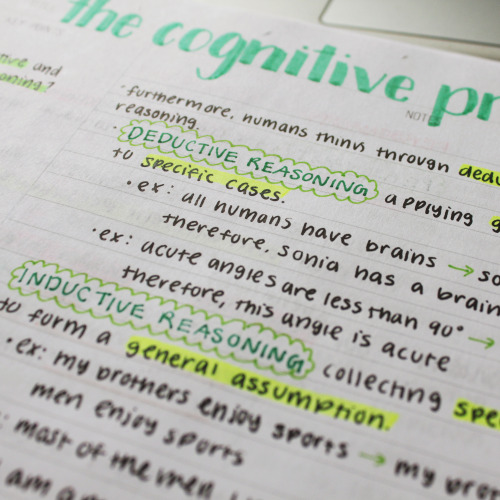 the cognitive pr
and
oning?
NOT
• furthermore, humans think through dedu
reasoning
• DEDUCTIVE REASONING applying g
to specific cases.
• ex: all humans have brains → so
therefore, sonia has a brain
• ex: acute angles are less than 90° →
therefore, this angle is acute
INDUCTIVE REASONING collecting spe
to form a general assumption.
• ex: my brothers enjoy sports → my bro
men enjoy sports
: most of the men
am a